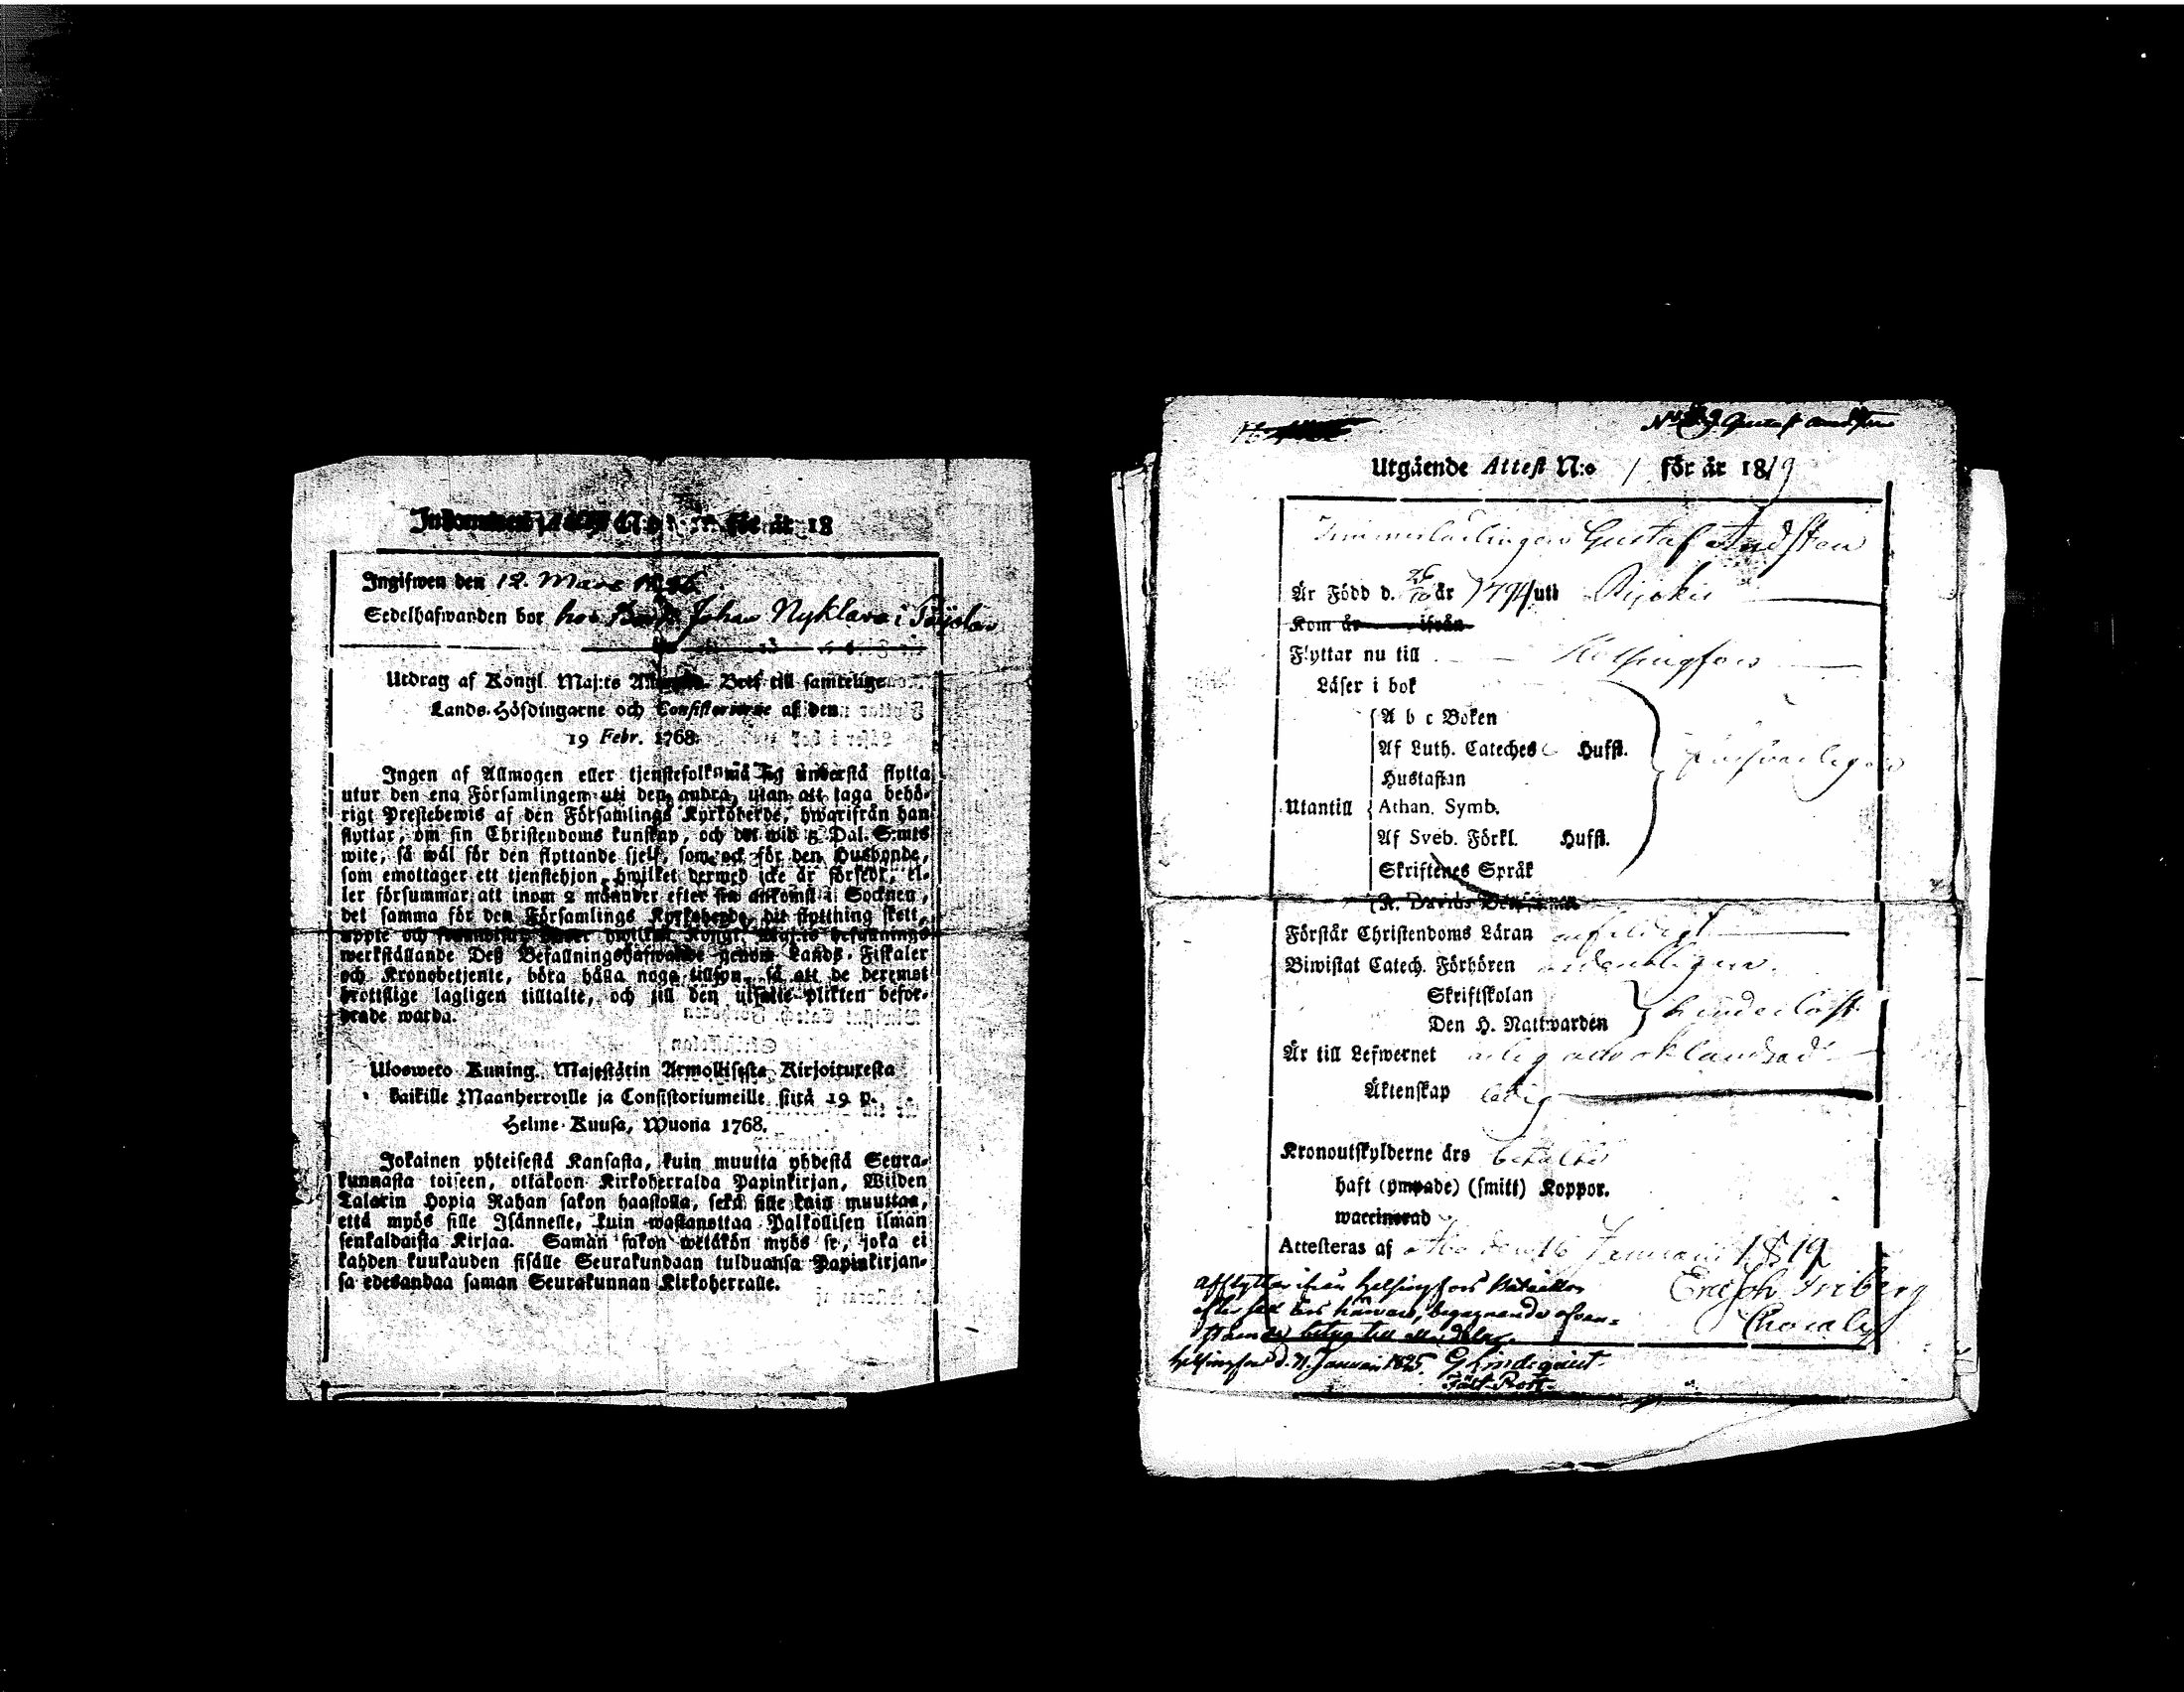 för år 18
Ingifwen den 12. Mars
Sedelhafwanden bor hos Johan Nyklars i
Utdrag af Kongl. Maj:ts Bref till samtelige
Lands-Höfdingarne och Consistorierne af den
19 Febr. 1768.
Ingen af Allmogen eller tjenstefolk må sig understå flytta
utur den ena Församlingen uti den andra, utan att taga behö-
rigt Prestebewis af den Församlings Kyrkoherde, hwarifrån han
flyttar, om sin Christendoms kunskap, och det wid 5 Dal. S:mts
wite, så wäl för den flyttande sjelf, som ock för den Husbonde,
som emottager ett tjenstehjon, hwilket dermed icke är försedt, el-
ler försummar att inom 2 månader efter sin ankomst i Socknen,
det samma för den Församlings Kyrkoherde, dit flyttning skett,
uppte och hwilket Kongl. Maj:ts befallnings
werkställande Deß Befallningshafwande genom Lands-Fiskaler
och Kronobetjente, böra hålla noga tillsyn, så att de deremot
brottslige lagligen tilltalte, och till den utsatte plikten befor-
drade warda.
Ulosweto Kuning. Majestätin Armollisesta Kirjoituxesta
kaikille Maanherroille ja Consistoriumeille siitä 19 p.
Helme-Kuusa, Wuona 1768.
Jokainen yhteisestä Kansasta, kuin muutta yhdestä Seura-
kunnasta toiseen, ottakoon Kirkoherralda Papinkirjan, Wiiden
Talarin Hopia Rahan sakon haastolla, sekä sille kuin muuttaa,
että myös sille Isännelle, kuin wastanottaa Palkollisen ilman
senkaldaista Kirjaa. Saman sakon wetäkön myös se, joka ei
kahden kuukauden sisälle Seurakundaan tulduansa Papinkirjan-
sa edesandaa saman Seurakunnan Kirkoherralle.
Gustaf Andsten
Utgående Attest N:o 1 för år 1819
Gustaf Andsten
Är Född d. 26/10 år 1794 uti
Kom år ifrån
Flyttar nu till Helsingfors
Läser i bok
A b c Boken
Af Luth. Cateches Hufst.
Hustaflan
försvarligen
Utantill Athan. Symb.
Af Sveb. Förkl. Hufst.
Skriftenes Språk
K. Davids
Förstår Christendoms Läran enfaldigt
Biwistat Catech. Förhören ordentligen.
Skriftskolan
Den H. Nattwarden
Är till Lefwernet ärlig och oklandrad
Äktenskap ledig
Kronoutskylderne års betalte
haft (ympade) (smitt) Koppor.
waccinerad
Attesteras af Åbo den 16 Januari 1819
Afflyttar ifrån Helsingfors
Helsingfors d. Januari 1825. G Lindequist